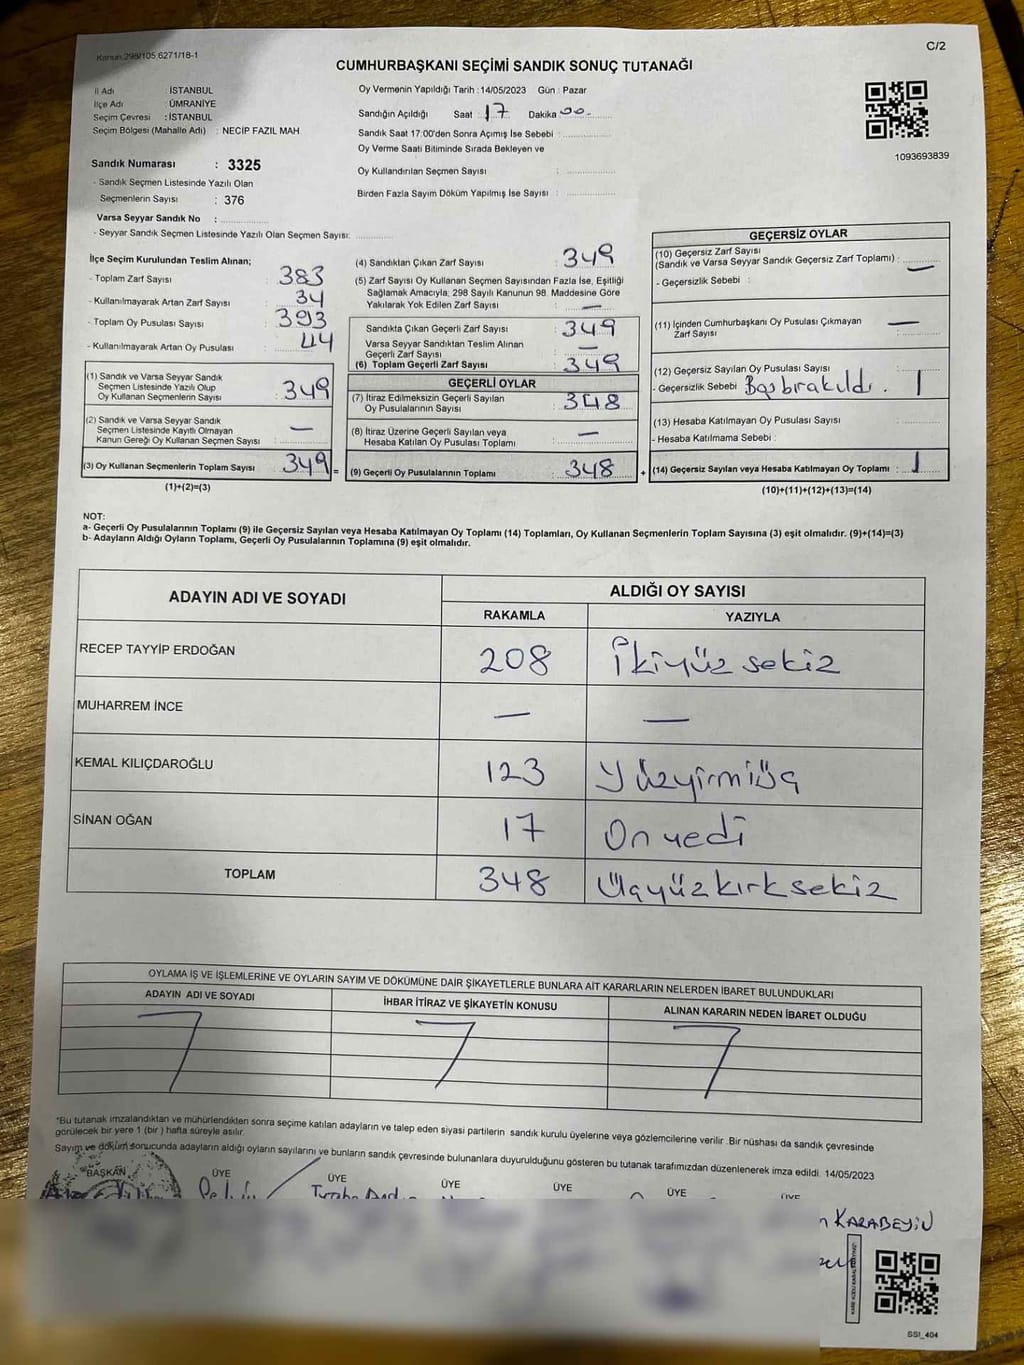 Kanun 298/105 6271/18-1
C/2
CUMHURBAŞKANI SEÇİMİ SANDIK SONUÇ TUTANAĞI
İl Adı : İSTANBUL
İlçe Adı : ÜMRANİYE
Seçim Çevresi : İSTANBUL
Seçim Bölgesi (Mahalle Adı) : NECİP FAZIL MAH
Sandık Numarası : 3325
- Sandık Seçmen Listesinde Yazılı Olan
Seçmenlerin Sayısı : 376
Varsa Seyyar Sandık No :
- Seyyar Sandık Seçmen Listesinde Yazılı Olan Seçmen Sayısı:
Oy Vermenin Yapıldığı Tarih : 14/05/2023 Gün : Pazar
Sandığın Açıldığı Saat : 17 Dakika 00
Sandık Saat 17:00'den Sonra Açımış İse Sebebi :
Oy Verme Saati Bitiminde Sırada Bekleyen ve
Oy Kullandırılan Seçmen Sayısı :
Birden Fazla Sayım Döküm Yapılmış İse Sayısı :
1093693839
İlçe Seçim Kurulundan Teslim Alınan;
- Toplam Zarf Sayısı : 383
- Kullanılmayarak Artan Zarf Sayısı : 34
- Toplam Oy Pusulası Sayısı : 393
- Kullanılmayarak Artan Oy Pusulası : 44
(1) Sandık ve Varsa Seyyar Sandık
Seçmen Listesinde Yazılı Olup
Oy Kullanan Seçmenlerin Sayısı : 349
(2) Sandık ve Varsa Seyyar Sandık
Seçmen Listesinde Kayıtlı Olmayan
Kanun Gereği Oy Kullanan Seçmen Sayısı : —
(3) Oy Kullanan Seçmenlerin Toplam Sayısı : 349 =
(1)+(2)=(3)
(4) Sandıktan Çıkan Zarf Sayısı : 349
(5) Zarf Sayısı Oy Kullanan Seçmen Sayısından Fazla İse, Eşitliği
Sağlamak Amacıyla; 298 Sayılı Kanunun 98. Maddesine Göre
Yakılarak Yok Edilen Zarf Sayısı : —
Sandıkta Çıkan Geçerli Zarf Sayısı : 349
Varsa Seyyar Sandıktan Teslim Alınan
Geçerli Zarf Sayısı : —
(6) Toplam Geçerli Zarf Sayısı : 349
GEÇERLİ OYLAR
(7) İtiraz Edilmeksizin Geçerli Sayılan
Oy Pusulalarının Sayısı : 348
(8) İtiraz Üzerine Geçerli Sayılan veya
Hesaba Katılan Oy Pusulası Toplamı : —
(9) Geçerli Oy Pusulalarının Toplamı : 348 +
GEÇERSİZ OYLAR
(10) Geçersiz Zarf Sayısı
(Sandık ve Varsa Seyyar Sandık Geçersiz Zarf Toplamı) : —
- Geçersizlik Sebebi :
(11) İçinden Cumhurbaşkanı Oy Pusulası Çıkmayan
Zarf Sayısı : —
(12) Geçersiz Sayılan Oy Pusulası Sayısı
- Geçersizlik Sebebi Boş bırakıldı. 1
(13) Hesaba Katılmayan Oy Pusulası Sayısı :
- Hesaba Katılmama Sebebi :
(14) Geçersiz Sayılan veya Hesaba Katılmayan Oy Toplamı : 1
(10)+(11)+(12)+(13)=(14)
NOT:
a- Geçerli Oy Pusulalarının Toplamı (9) ile Geçersiz Sayılan veya Hesaba Katılmayan Oy Toplamı (14) Toplamları, Oy Kullanan Seçmenlerin Toplam Sayısına (3) eşit olmalıdır. (9)+(14)=(3)
b- Adayların Aldığı Oyların Toplamı, Geçerli Oy Pusulalarının Toplamına (9) eşit olmalıdır.
ADAYIN ADI VE SOYADI
ALDIĞI OY SAYISI
RAKAMLA YAZIYLA
RECEP TAYYİP ERDOĞAN 208 İkiyüz sekiz
MUHARREM İNCE — —
KEMAL KILIÇDAROĞLU 123 Yüzyirmiüç
SİNAN OĞAN 17 On yedi
TOPLAM 348 Üçyüz kırk sekiz
OYLAMA İŞ VE İŞLEMLERİNE VE OYLARIN SAYIM VE DÖKÜMÜNE DAİR ŞİKAYETLERLE BUNLARA AİT KARARLARIN NELERDEN İBARET BULUNDUKLARI
ADAYIN ADI VE SOYADI İHBAR İTİRAZ VE ŞİKAYETİN KONUSU ALINAN KARARIN NEDEN İBARET OLDUĞU
*Bu tutanak imzalandıktan ve mühürlendikten sonra seçime katılan adayların ve talep eden siyasi partilerin sandık kurulu üyelerine veya gözlemcilerine verilir .Bir nüshası da sandık çevresinde
görülecek bir yere 1 (bir ) hafta süreyle asılır.
Sayım ve döküm sonucunda adayların aldığı oyların sayılarını ve bunların sandık çevresinde bulunanlara duyurulduğunu gösteren bu tutanak tarafımızdan düzenlenerek imza edildi. 14/05/2023
BAŞKAN ÜYE ÜYE ÜYE ÜYE ÜYE ÜYE
KARABEYİN
SSİ_404